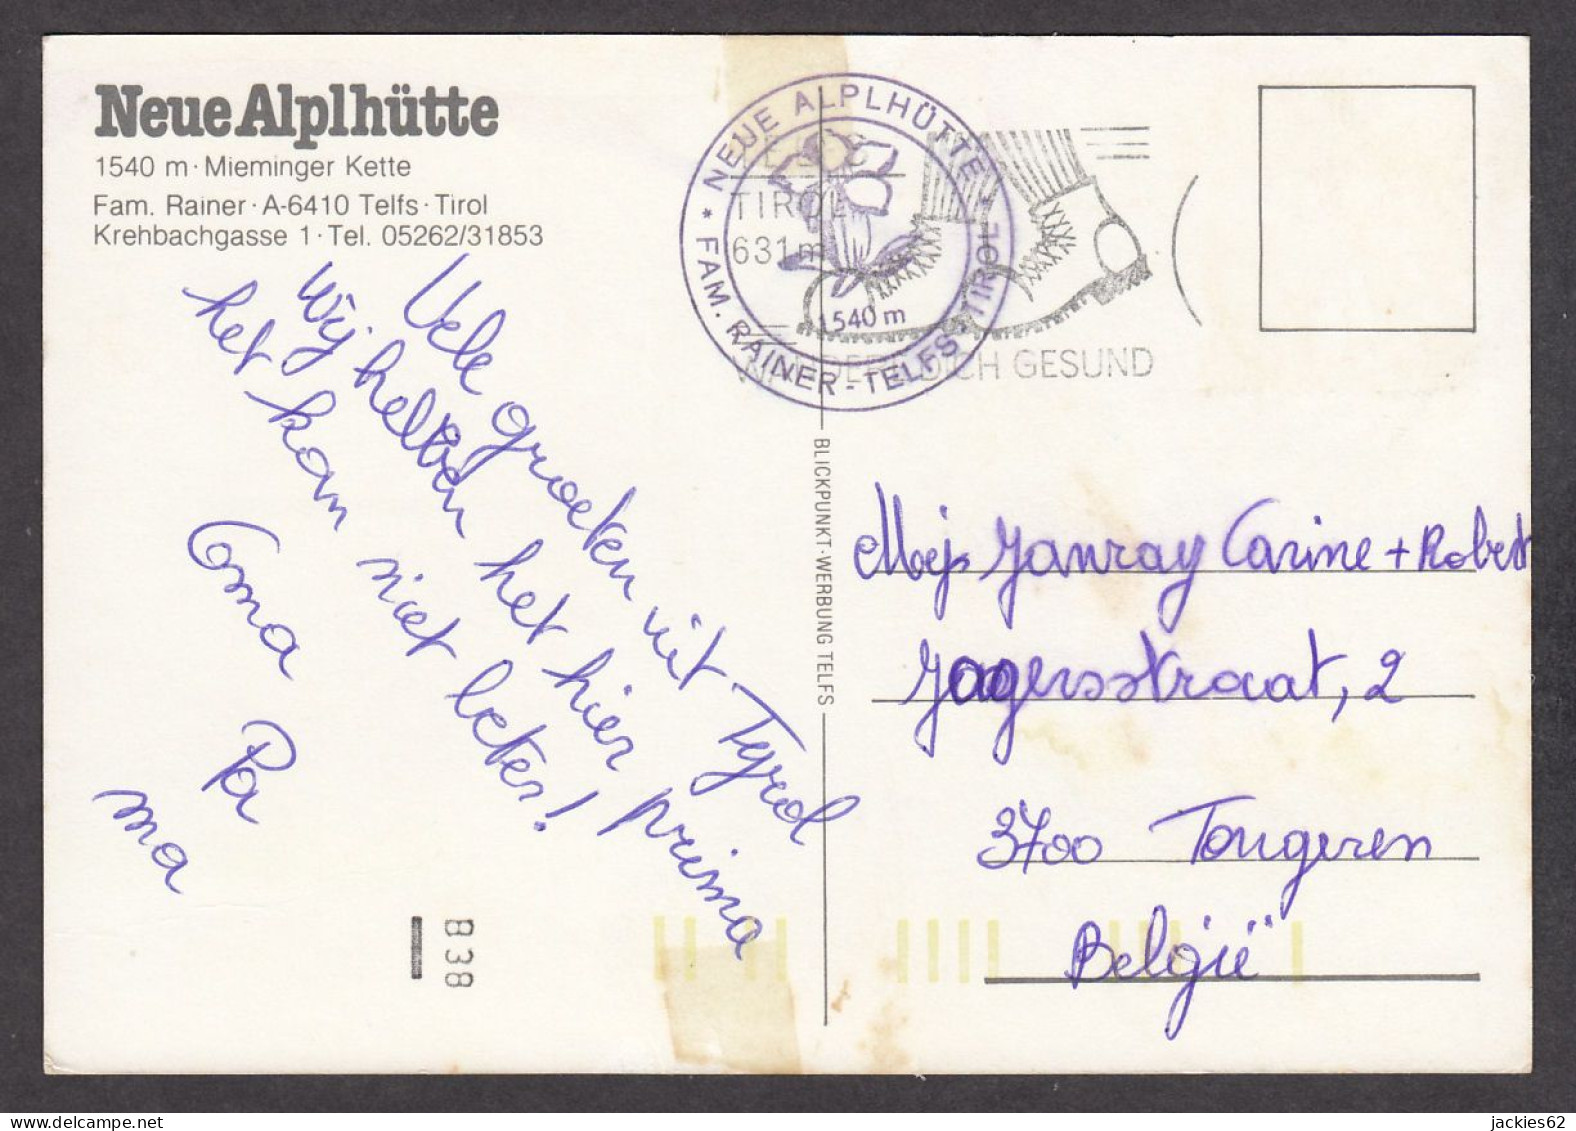 Neue Alplhütte
1540 m · Mieminger Kette
Fam. Rainer · A-6410 Telfs · Tirol
Krehbachgasse 1 · Tel. 05262/31853
Vele groeten uit Tyrol
Wij hebben het hier prima
het kan niet beter!
Oma Pa
ma
* NEUE ALPLHÜTTE * FAM. RAINER - TELFS - TIROL
1540 m
TELFS
TIROL
631 m
WANDERE DICH GESUND
BLICKPUNKT · WERBUNG TELFS
Mej Janray Carine + Robert
Jagersstraat, 2
3700 Tongeren
België
B 38
jackies62